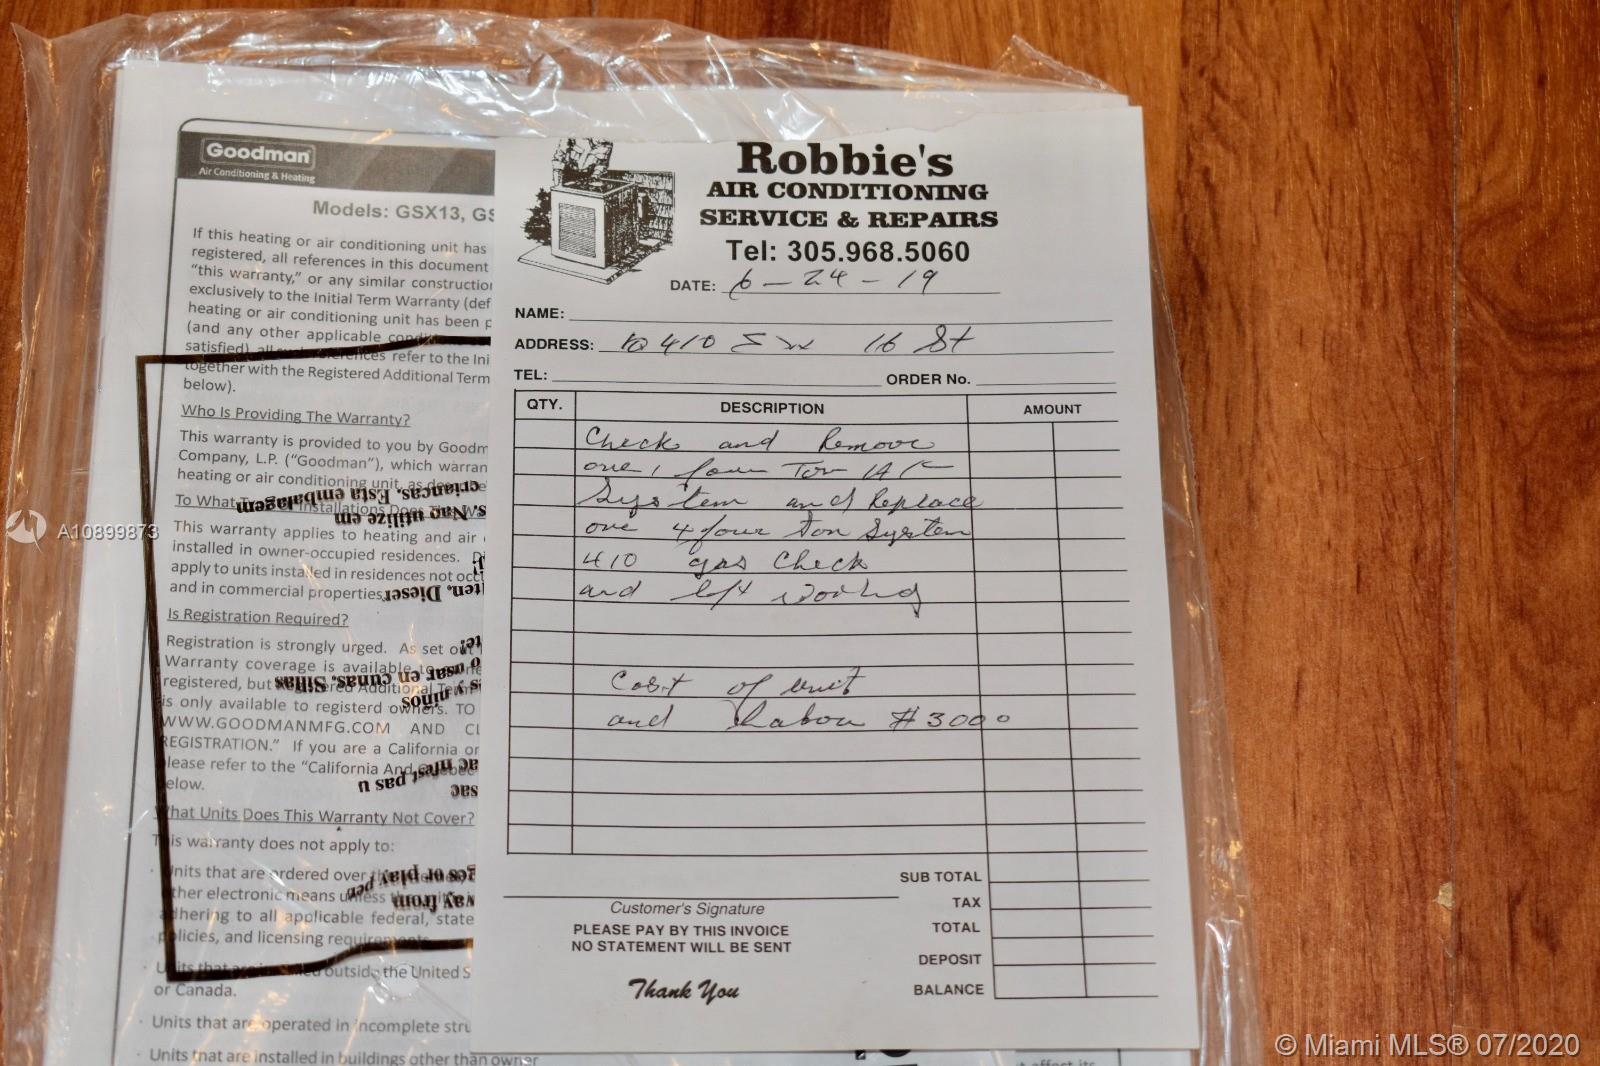 Goodman
Air Conditioning & Heating
Models: GSX13,
If this heating or air conditioning unit has
registered, all references in this document
"this warranty," or any similar construction
exclusively to the Initial Term Warranty (def
heating or air conditioning unit has been p
(and any other applicable
satisfied), all references refer to the Ini
together with the Registered Additional Term
below).
Who Is Providing The Warranty?
This warranty is provided to you by Goodm
Company, L.P. ("Goodman"), which warran
heating or air conditioning unit, as
crianças. Esta embalagem
To What Installations Does
s. Nao utilize em
This warranty applies to heating and air
installed in owner-occupied residences.
apply to units installed in residences not occ
and in commercial properties.
lten. Dieser
Is Registration Required?
Registration is strongly urged. As set out
Warranty coverage is available to
o usar en cunas. Sillas
registered, but Registered Additional
s y niños
is only available to registerd owners. TO
WWW.GOODMANMFG.COM AND CL
REGISTRATION." If you are a California or
please refer to the "California And Quebec
below.
ac n'est pas u
sac
What Units Does This Warranty Not Cover?
This warranty does not apply to:
· Units that are ordered over
ges or play pen
other electronic means unless
way from
adhering to all applicable federal, state
policies, and licensing requirements.
· Units that are outside the United S
or Canada.
· Units that are operated in incomplete stru
· Units that are installed in buildings other than owner
Robbie's
AIR CONDITIONING
SERVICE & REPAIRS
Tel: 305.968.5060
DATE: 6-24-19
NAME:
ADDRESS: 10410 SW 16 St
TEL: ORDER No.
QTY. DESCRIPTION AMOUNT
Check and Remove
one 1 four Ton A/C
System and Replace
one 4 four ton System
410 gas Check
and left working
Cost of unit
and Labour $3000
SUB TOTAL
TAX
Customer's Signature
TOTAL
PLEASE PAY BY THIS INVOICE
NO STATEMENT WILL BE SENT
DEPOSIT
BALANCE
Thank You
A10899873
© Miami MLS® 07/2020